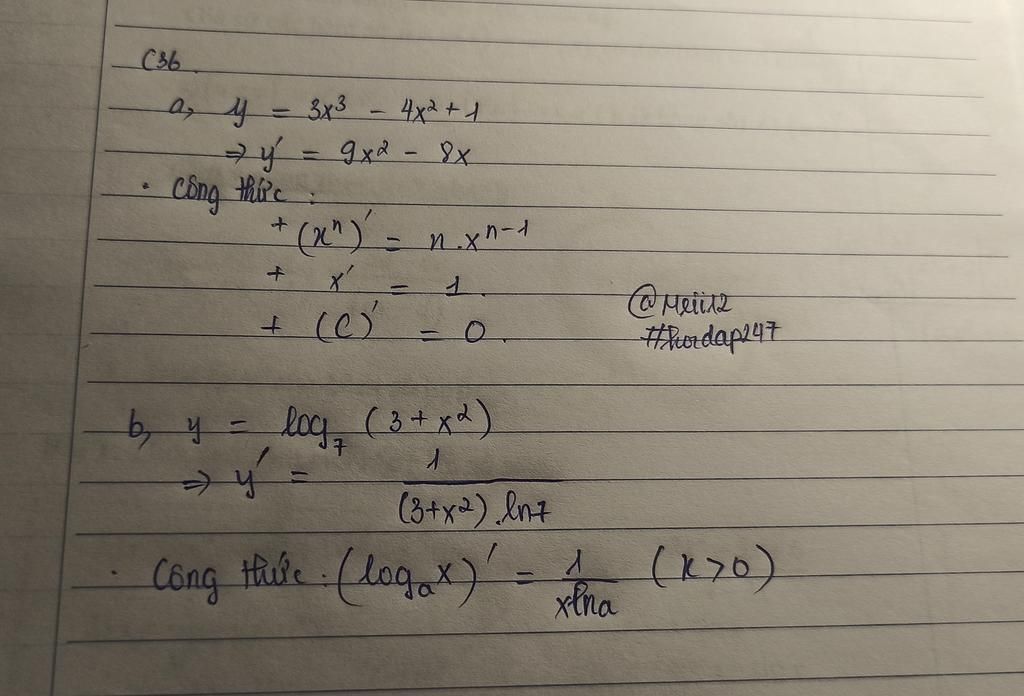 C36.
a, y = 3x³ - 4x² + 1
⇒ y' = 9x² - 8x
• Công thức :
+ (xⁿ)' = n.xⁿ⁻¹
+ x' = 1.
+ (C)' = 0.
@Meii12
#hoidap247
b, y = log₇ (3 + x²)
⇒ y' = 1 / (3+x²).ln7
• Công thức : (logₐx)' = 1 / xlna (x>0)